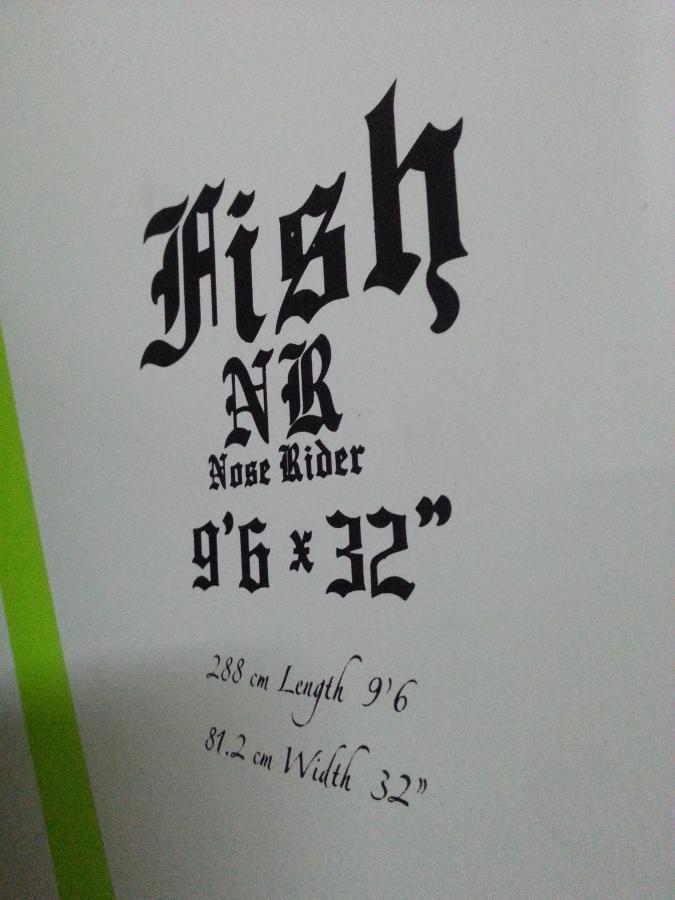 Fish
NR
Nose Rider
9'6 x 32"
288 cm Length 9'6
81.2 cm Width 32"